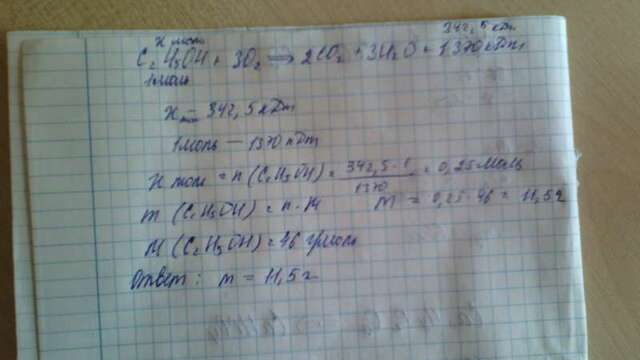 х моль 342,5 кДж
C₂H₅OH + 3O₂ ⟹ 2CO₂ + 3H₂O + 1370 кДж
1 моль
х моль — 342,5 кДж
1 моль — 1370 кДж
х моль = n (C₂H₅OH) = 342,5 · 1 / 1370 = 0,25 моль
m (C₂H₅OH) = n · M m = 0,25 · 46 = 11,5 г
M (C₂H₅OH) = 46 г/моль
Ответ: m = 11,5 г